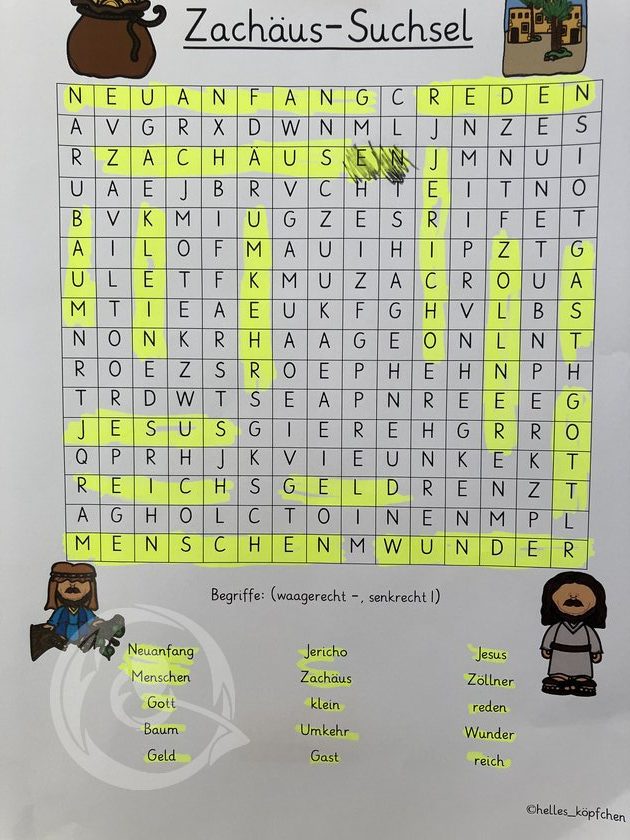 Zachäus-Suchsel
N E U A N F A N G C R E D E N
A V G R X D W N M L J N Z E S
R Z A C H Ä U S E N J M N U I
U A E J B R V C H I E I T N O
B V K M I U G Z E S R I F E T
A I L O F M A U I H I P Z T G
U L E T F K M U Z A C R O U A
M T I E A E U K F G H V L B S
N O N K R H A A G E O N L N T
R O E Z S R O E P H E H N P H
T R D W T S E A P N R E E E G
J E S U S G I E R E H G R R O
Q P R H J K V I E U N K E K T
R E I C H S G E L D R E N Z T
A G H O L C T O I N E N M P L
M E N S C H E N M W U N D E R
Begriffe: (waagerecht –, senkrecht l)
Neuanfang Jericho Jesus
Menschen Zachäus Zöllner
Gott klein reden
Baum Umkehr Wunder
Geld Gast reich
©helles_köpfchen